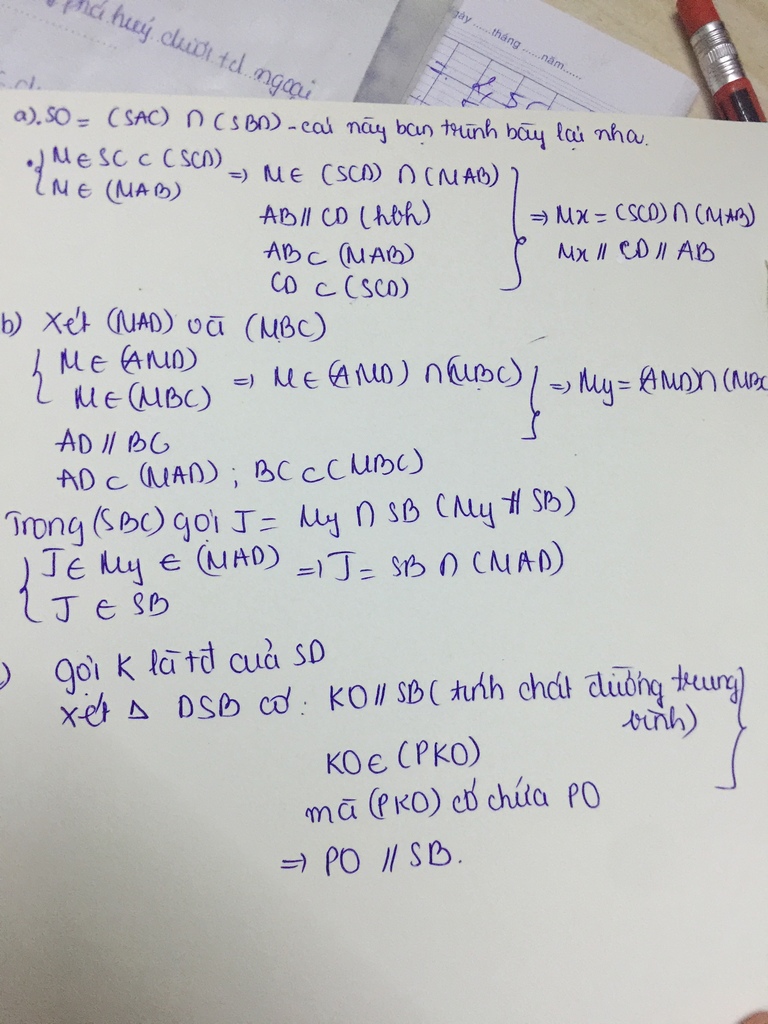 phá huý dưới td ngoại
gày ...... tháng ...... năm......
a). SO = (SAC) ∩ (SBD) - cái này bạn trình bày lại nha.
• { M ∈ SC ⊂ (SCD)
{ M ∈ (MAB)
=> M ∈ (SCD) ∩ (MAB)
AB // CD (hbh)
AB ⊂ (MAB)
CD ⊂ (SCD)
} => Mx = (SCD) ∩ (MAB)
Mx // CD // AB
b) Xét (MAD) và (MBC)
{ M ∈ (AMD)
{ M ∈ (MBC)
=> M ∈ (AMD) ∩ (MBC) } => My = (AMD) ∩ (MBC
AD // BC
AD ⊂ (MAD) ; BC ⊂ (MBC)
Trong (SBC) gọi J = My ∩ SB (My ∦ SB)
{ J ∈ My ∈ (MAD)
{ J ∈ SB
=> J = SB ∩ (MAD)
) gọi K là tđ của SD
xét Δ DSB có : KO // SB ( tính chất đường trung
bình) }
KO ∈ (PKO)
mà (PKO) có chứa PO
=> PO // SB.